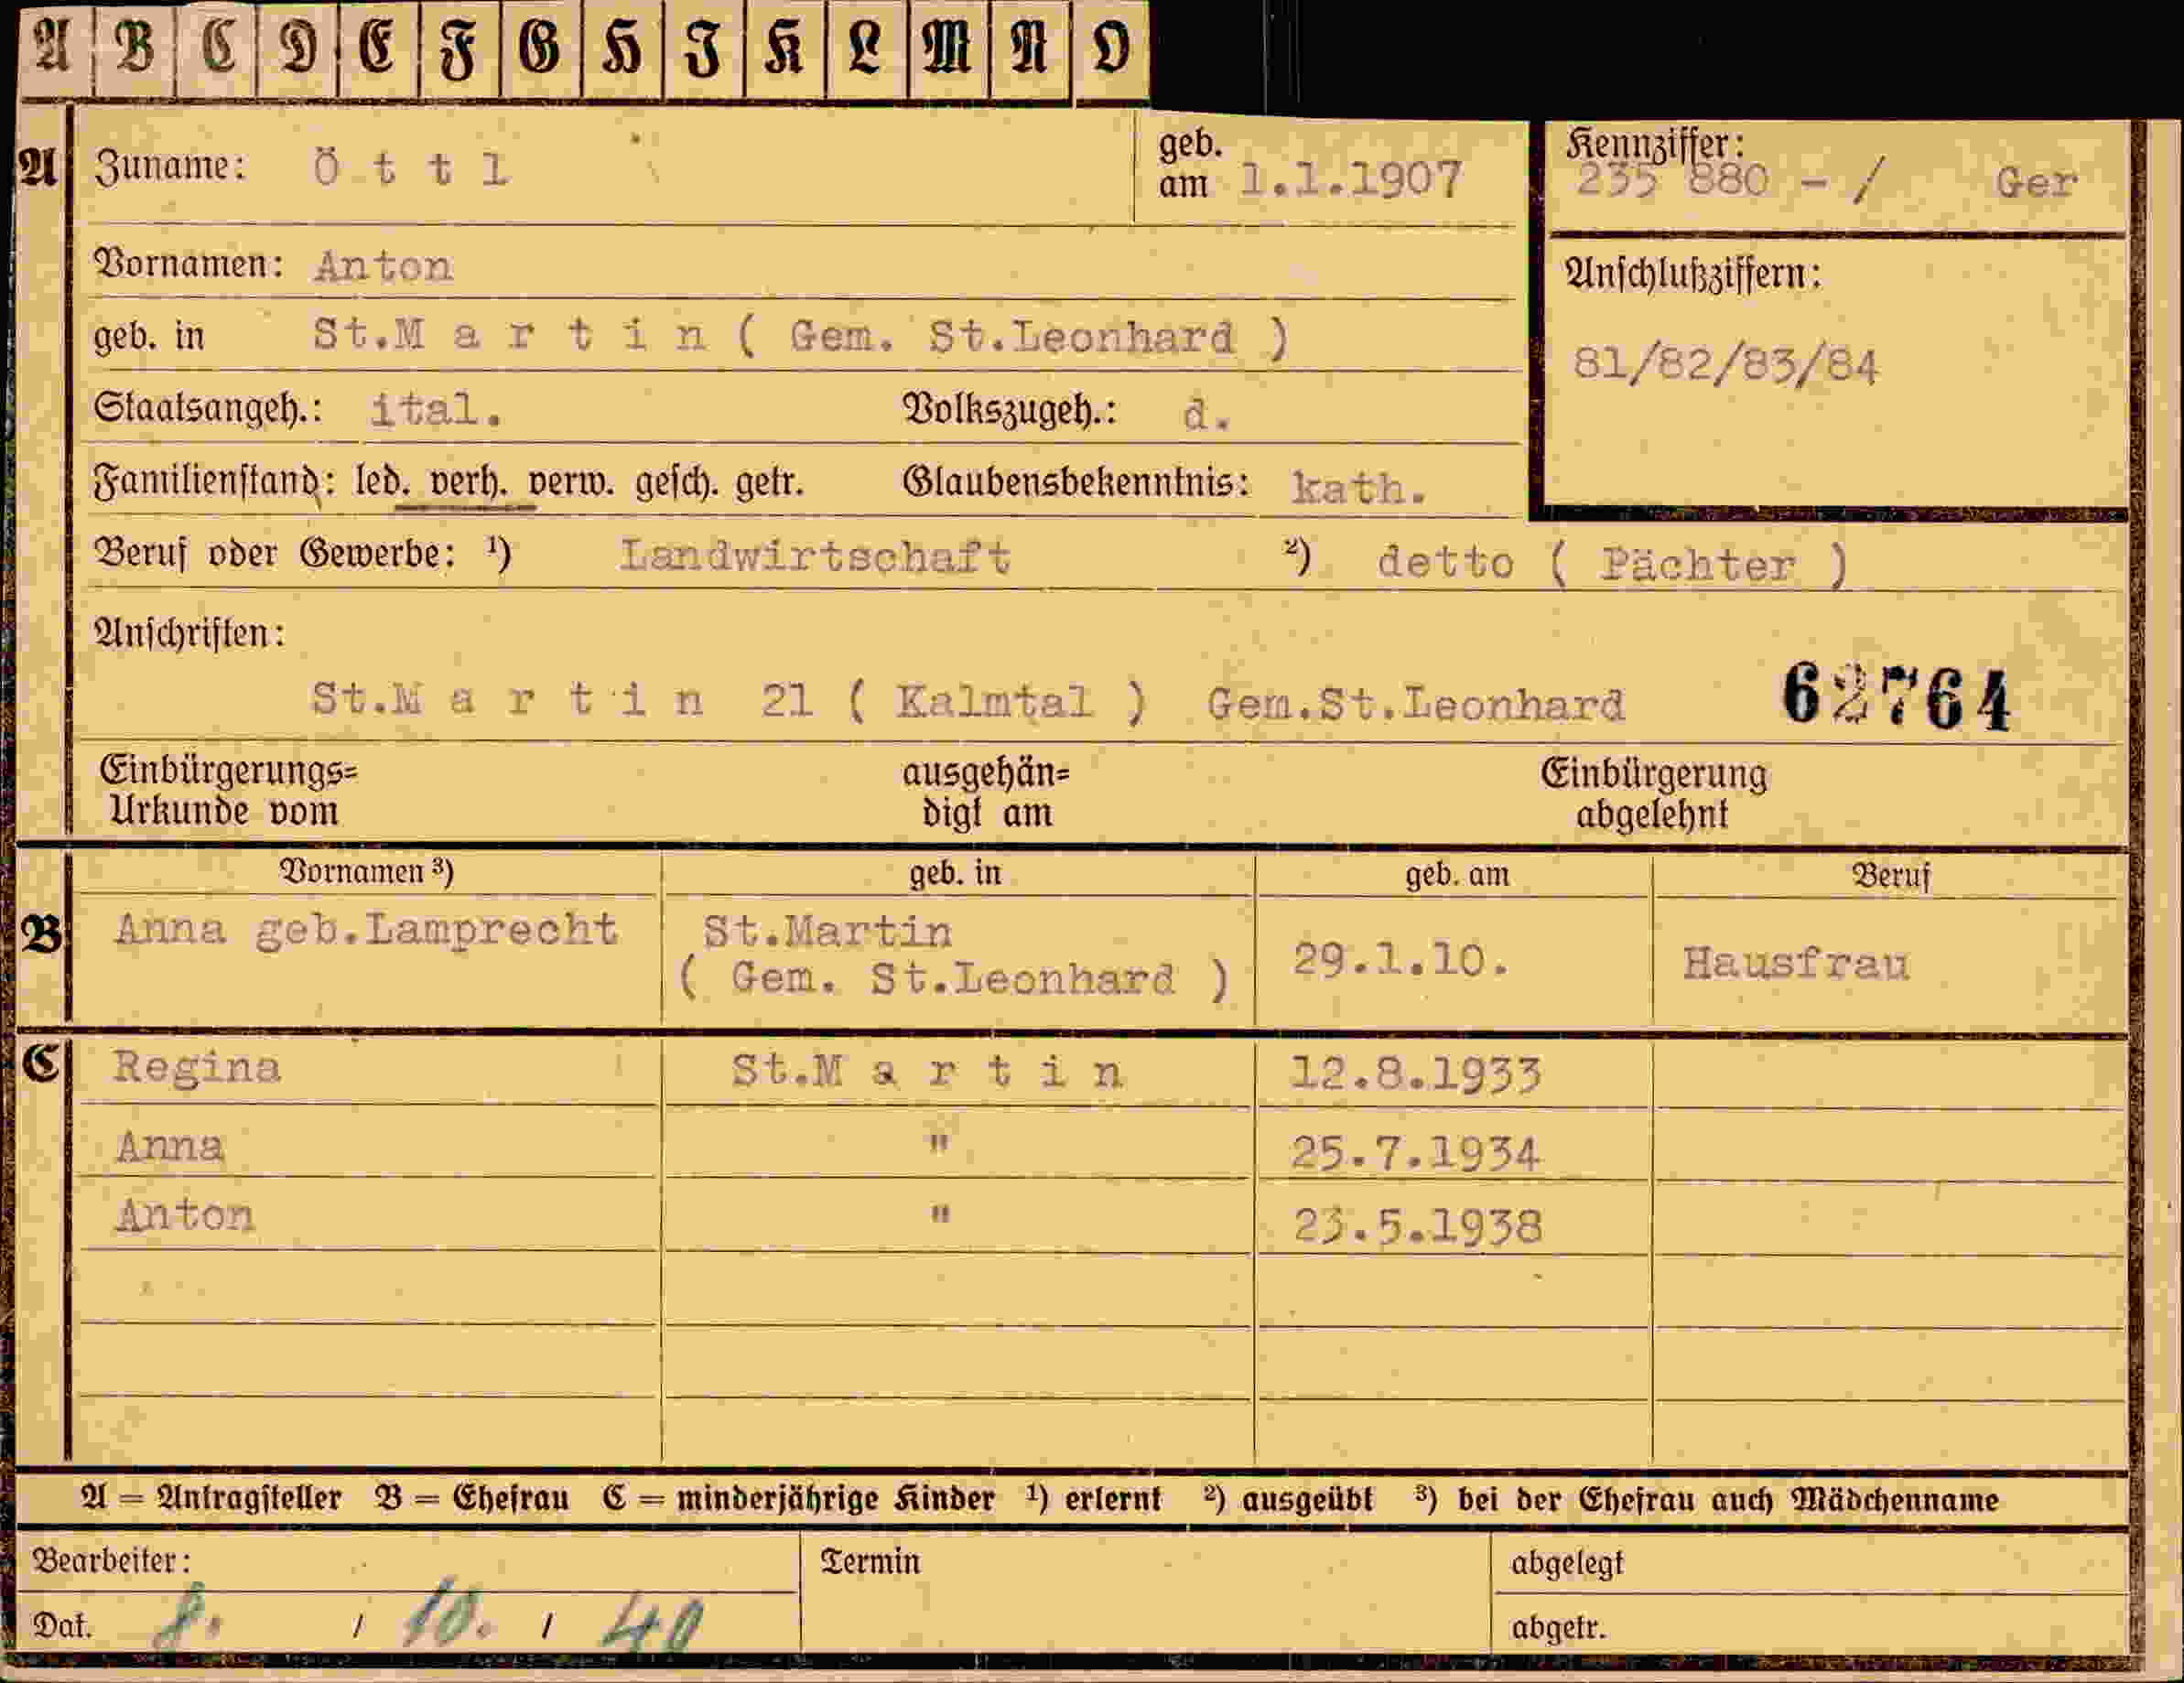 A B C D E F G H J K L M N O
A Zuname: Ö t t l geb. am 1.1.1907 Kennziffer: 235 880 - / Ger
Vornamen: Anton Anschlußziffern:
geb. in St.M a r t i n ( Gem. St.Leonhard ) 81/82/83/84
Staatsangeh.: ital. Volkszugeh.: d.
Familienstand: led. verh. verw. gesch. getr. Glaubensbekenntnis: kath.
Beruf oder Gewerbe: ¹) Landwirtschaft ²) detto ( Pächter )
Anschriften:
St.M a r t i n 21 ( Kalmtal ) Gem.St.Leonhard 62764
Einbürgerungs= ausgehän= Einbürgerung
Urkunde vom digt am abgelehnt
Vornamen ³) geb. in geb. am Beruf
B Anna geb.Lamprecht St.Martin 29.1.10. Hausfrau
( Gem. St.Leonhard )
C Regina St.M a r t i n 12.8.1933
Anna " 25.7.1934
Anton " 23.5.1938
A = Antragsteller B = Ehefrau C = minderjährige Kinder ¹) erlernt ²) ausgeübt ³) bei der Ehefrau auch Mädchenname
Bearbeiter: Termin abgelegt
Dat. 8. / 10. / 40 abgetr.